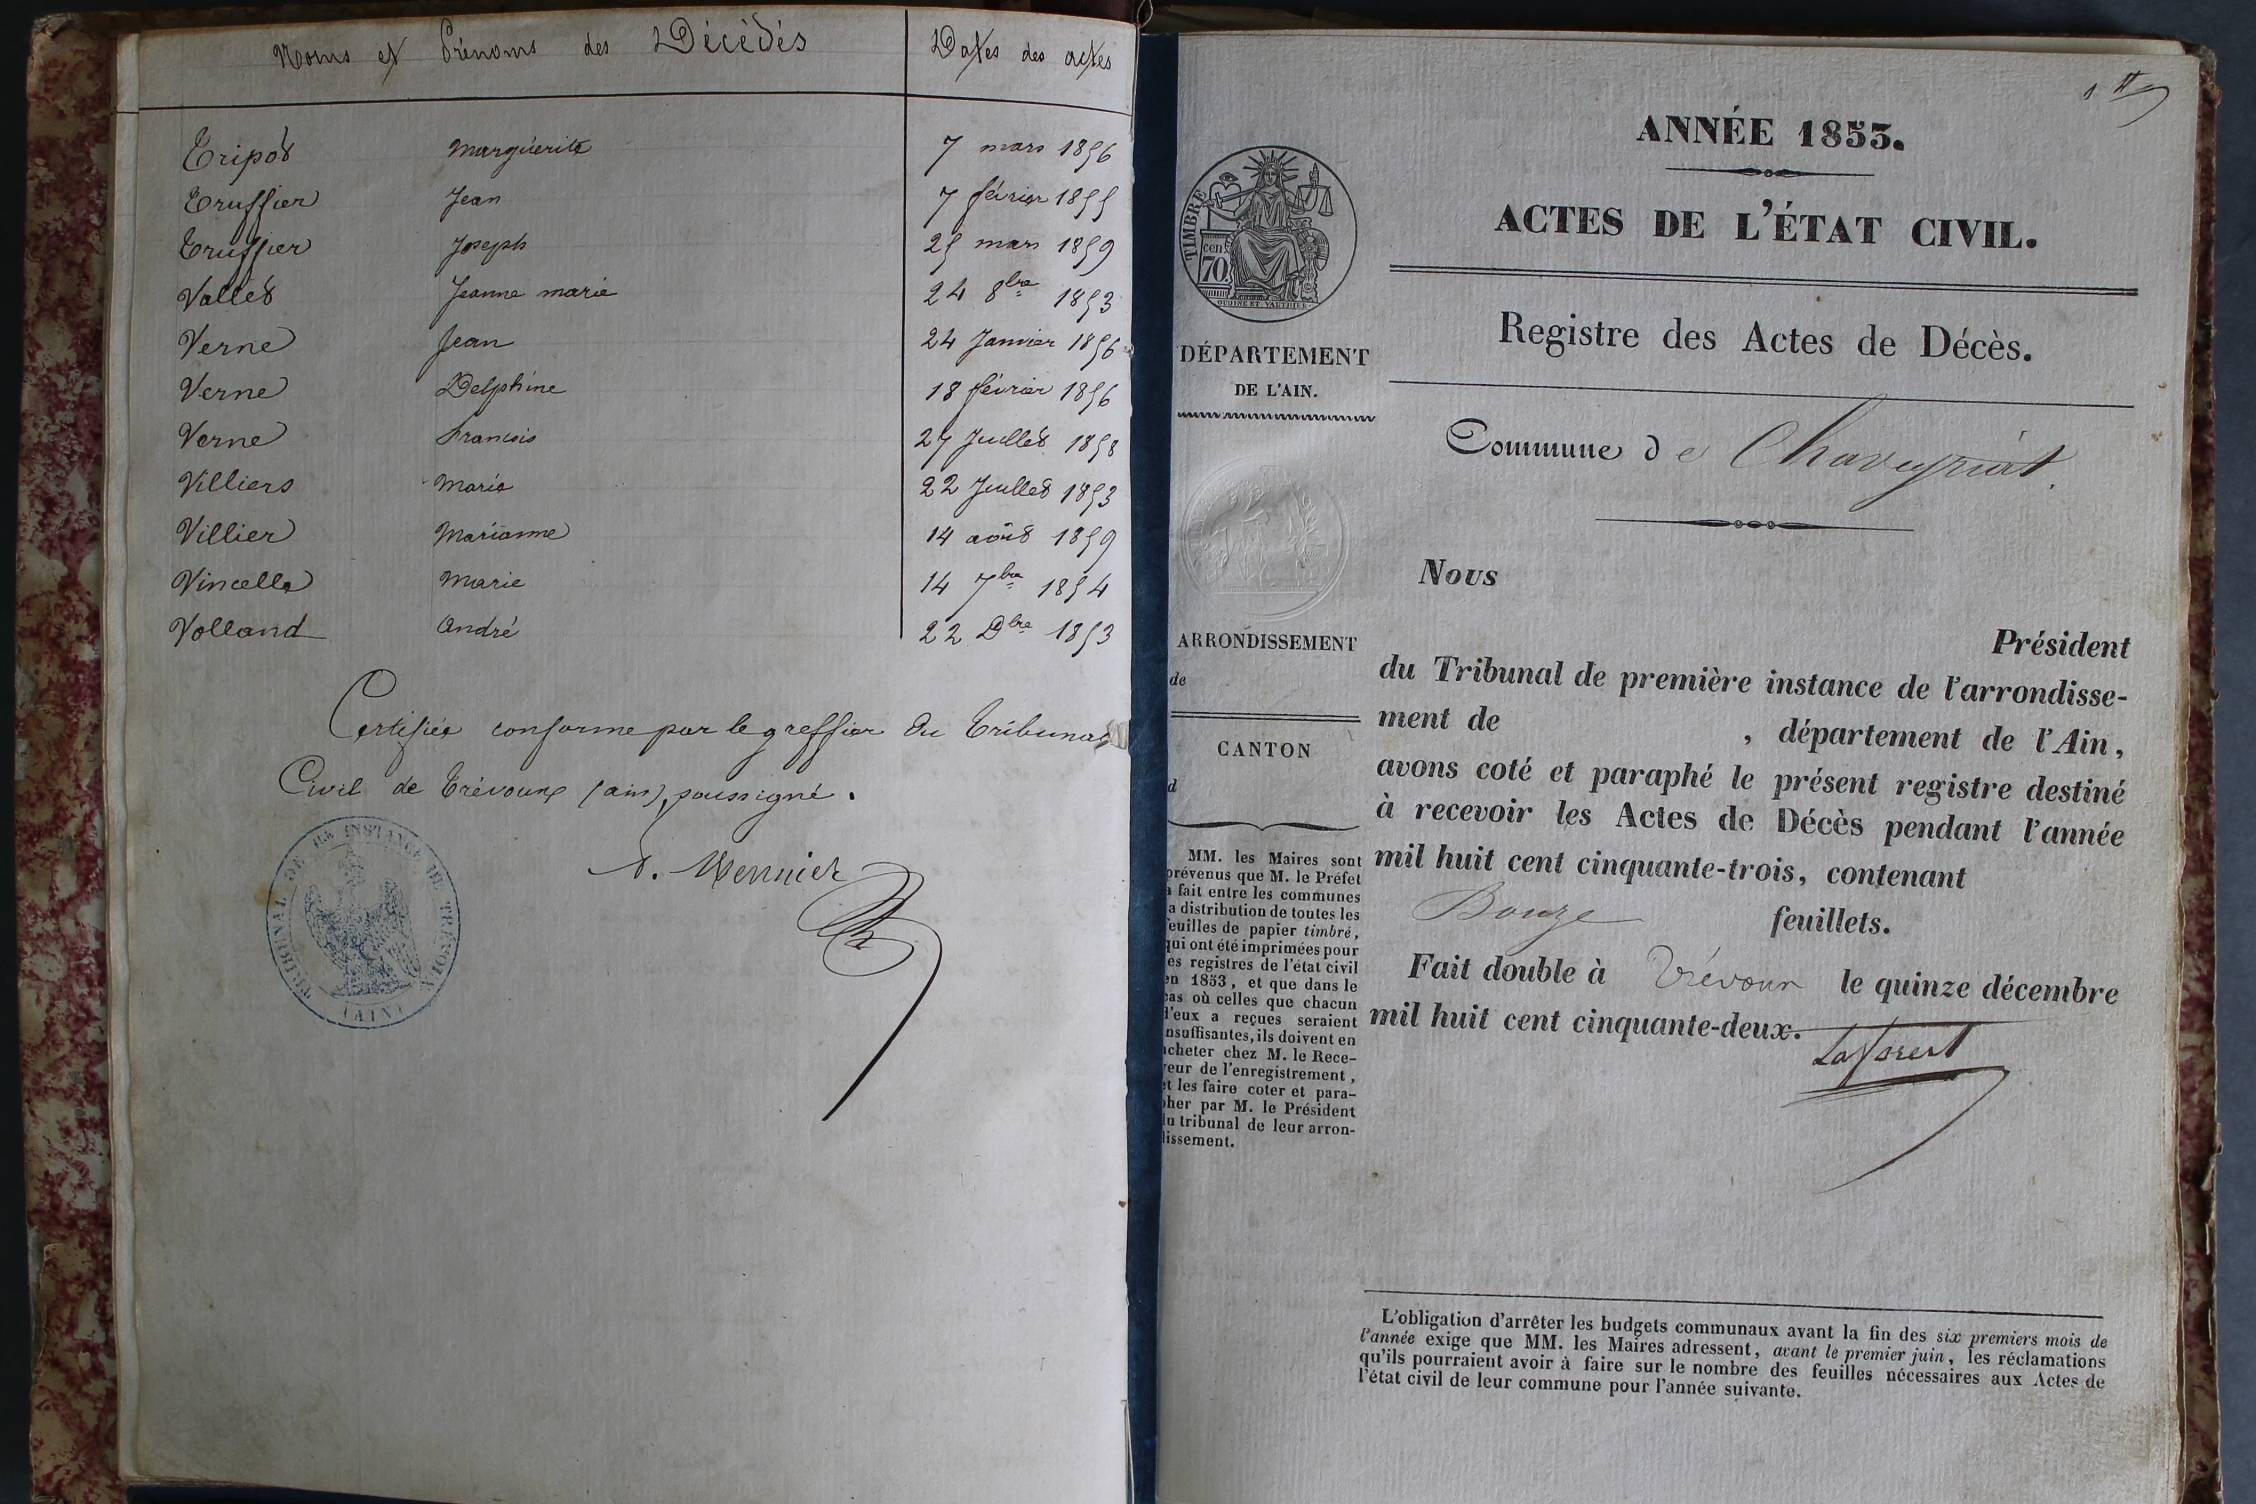 Noms et Prénoms des Décédés Dates des actes
Tripod Marguerite 7 mars 1856
Truffier Jean 7 février 1855
Truffier Joseph 25 mars 1859
Vallet Jeanne marie 24 8bre 1853
Verne Jean 24 Janvier 1856
Verne Delphine 18 février 1856
Verne Francois 27 Juillet 1858
Villiers Marie 22 Juillet 1853
Villier Marianne 14 août 1859
Vincelle Marie 14 7bre 1854
Volland André 22 Dbre 1853
Certifiée conforme par le greffier du Tribunal
Civil de Trévoux (ain), soussigné.
TRIBUNAL DE 1re INSTANCE DE TRÉVOUX
(AIN)
1er
ANNÉE 1853.
ACTES DE L'ÉTAT CIVIL.
Registre des Actes de Décès.
Commune de Chaveyriat.
TIMBRE
cen
70
OUDINÉ ET VAUTHIER
DÉPARTEMENT
DE L'AIN.
ARRONDISSEMENT
de
CANTON
d
MM. les Maires sont
prévenus que M. le Préfet
a fait entre les communes
la distribution de toutes les
feuilles de papier timbré,
qui ont été imprimées pour
les registres de l'état civil
en 1853, et que dans le
cas où celles que chacun
d'eux a reçues seraient
insuffisantes, ils doivent en
acheter chez M. le Rece-
veur de l'enregistrement,
et les faire coter et para-
pher par M. le Président
du tribunal de leur arron-
dissement.
Nous
Président
du Tribunal de première instance de l'arrondisse-
ment de , département de l'Ain,
avons coté et paraphé le présent registre destiné
à recevoir les Actes de Décès pendant l'année
mil huit cent cinquante-trois, contenant
feuillets.
Fait double à Trévoux le quinze décembre
mil huit cent cinquante-deux.
Laforest
L'obligation d'arrêter les budgets communaux avant la fin des six premiers mois de
l'année exige que MM. les Maires adressent, avant le premier juin, les réclamations
qu'ils pourraient avoir à faire sur le nombre des feuilles nécessaires aux Actes de
l'état civil de leur commune pour l'année suivante.